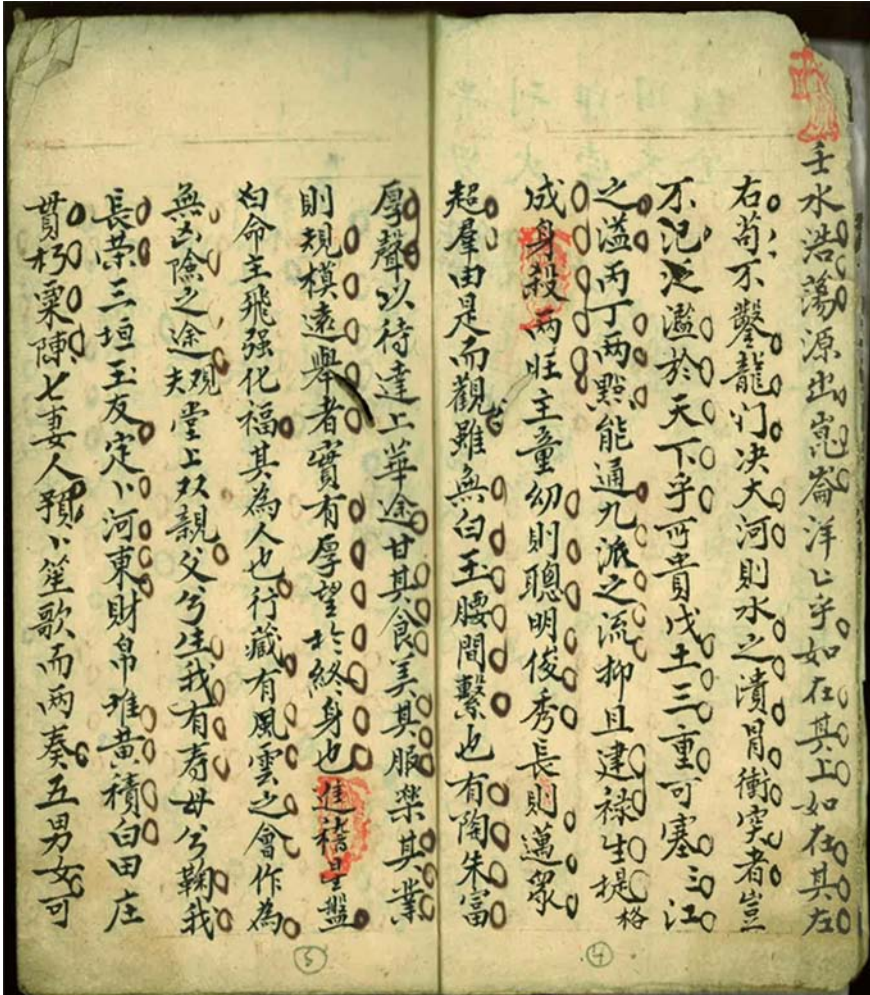 壬水浩蕩源出崑崙洋〻乎如在其上如在其左
右苟不鑿龍门决大河則水之潰冒衝突者豈
不氾泛濫於天下乎所貴戊土三重可塞三江
之溢丙丁两點能通九派之流抑且建禄生提格
成身殺两旺主童幼則聰明俊秀長則邁衆
超羣由是而觀雖無白玉腰間繫也有陶朱富
厚聲以待達上華途甘其食美其服樂其業
則規模遠舉者實有厚望於終身也進稽星盤
命主飛强化福其為人也行藏有風雲之會作為
無凶險之途观夫堂上双親父兮生我有寿母兮鞠我
長荣三垣玉友定〻河東財帛堆黄積白田庄
貫朽粟陳七妻人預〻笙歌而两奏五男女可
④
⑤